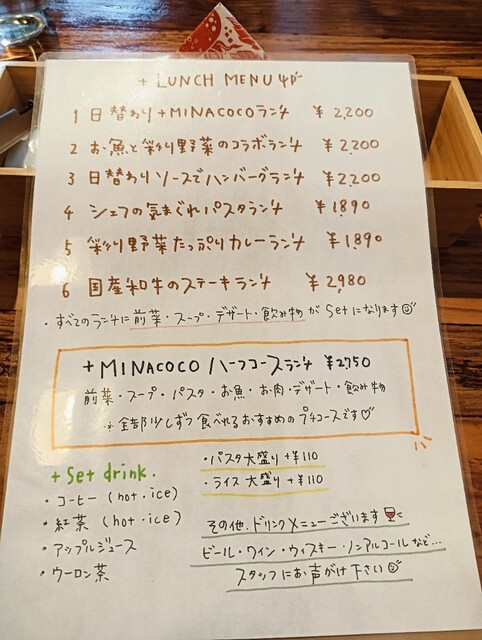 + LUNCH MENU
1 日替わり+MINACOCOランチ ¥2,200
2 お魚と彩り野菜のコラボランチ ¥2,200
3 日替わりソースでハンバーグランチ ¥2,200
4 シェフの気まぐれパスタランチ ¥1,890
5 彩り野菜たっぷりカレーランチ ¥1,890
6 国産和牛のステーキランチ ¥2,980
・すべてのランチに前菜・スープ・デザート・飲み物がSetになります
+MINACOCO ハーフコースランチ ¥2,750
前菜・スープ・パスタ・お魚・お肉・デザート・飲み物
※全部少しずつ食べれるおすすめのプチコースです♡
+ Set drink.
・コーヒー (hot・ice)
・紅茶 (hot・ice)
・アップルジュース
・ウーロン茶
・パスタ大盛り+¥110
・ライス大盛り+¥110
その他、ドリンクメニューございます
ビール・ワイン・ウィスキー・ノンアルコールなど...
スタッフにお声がけ下さい